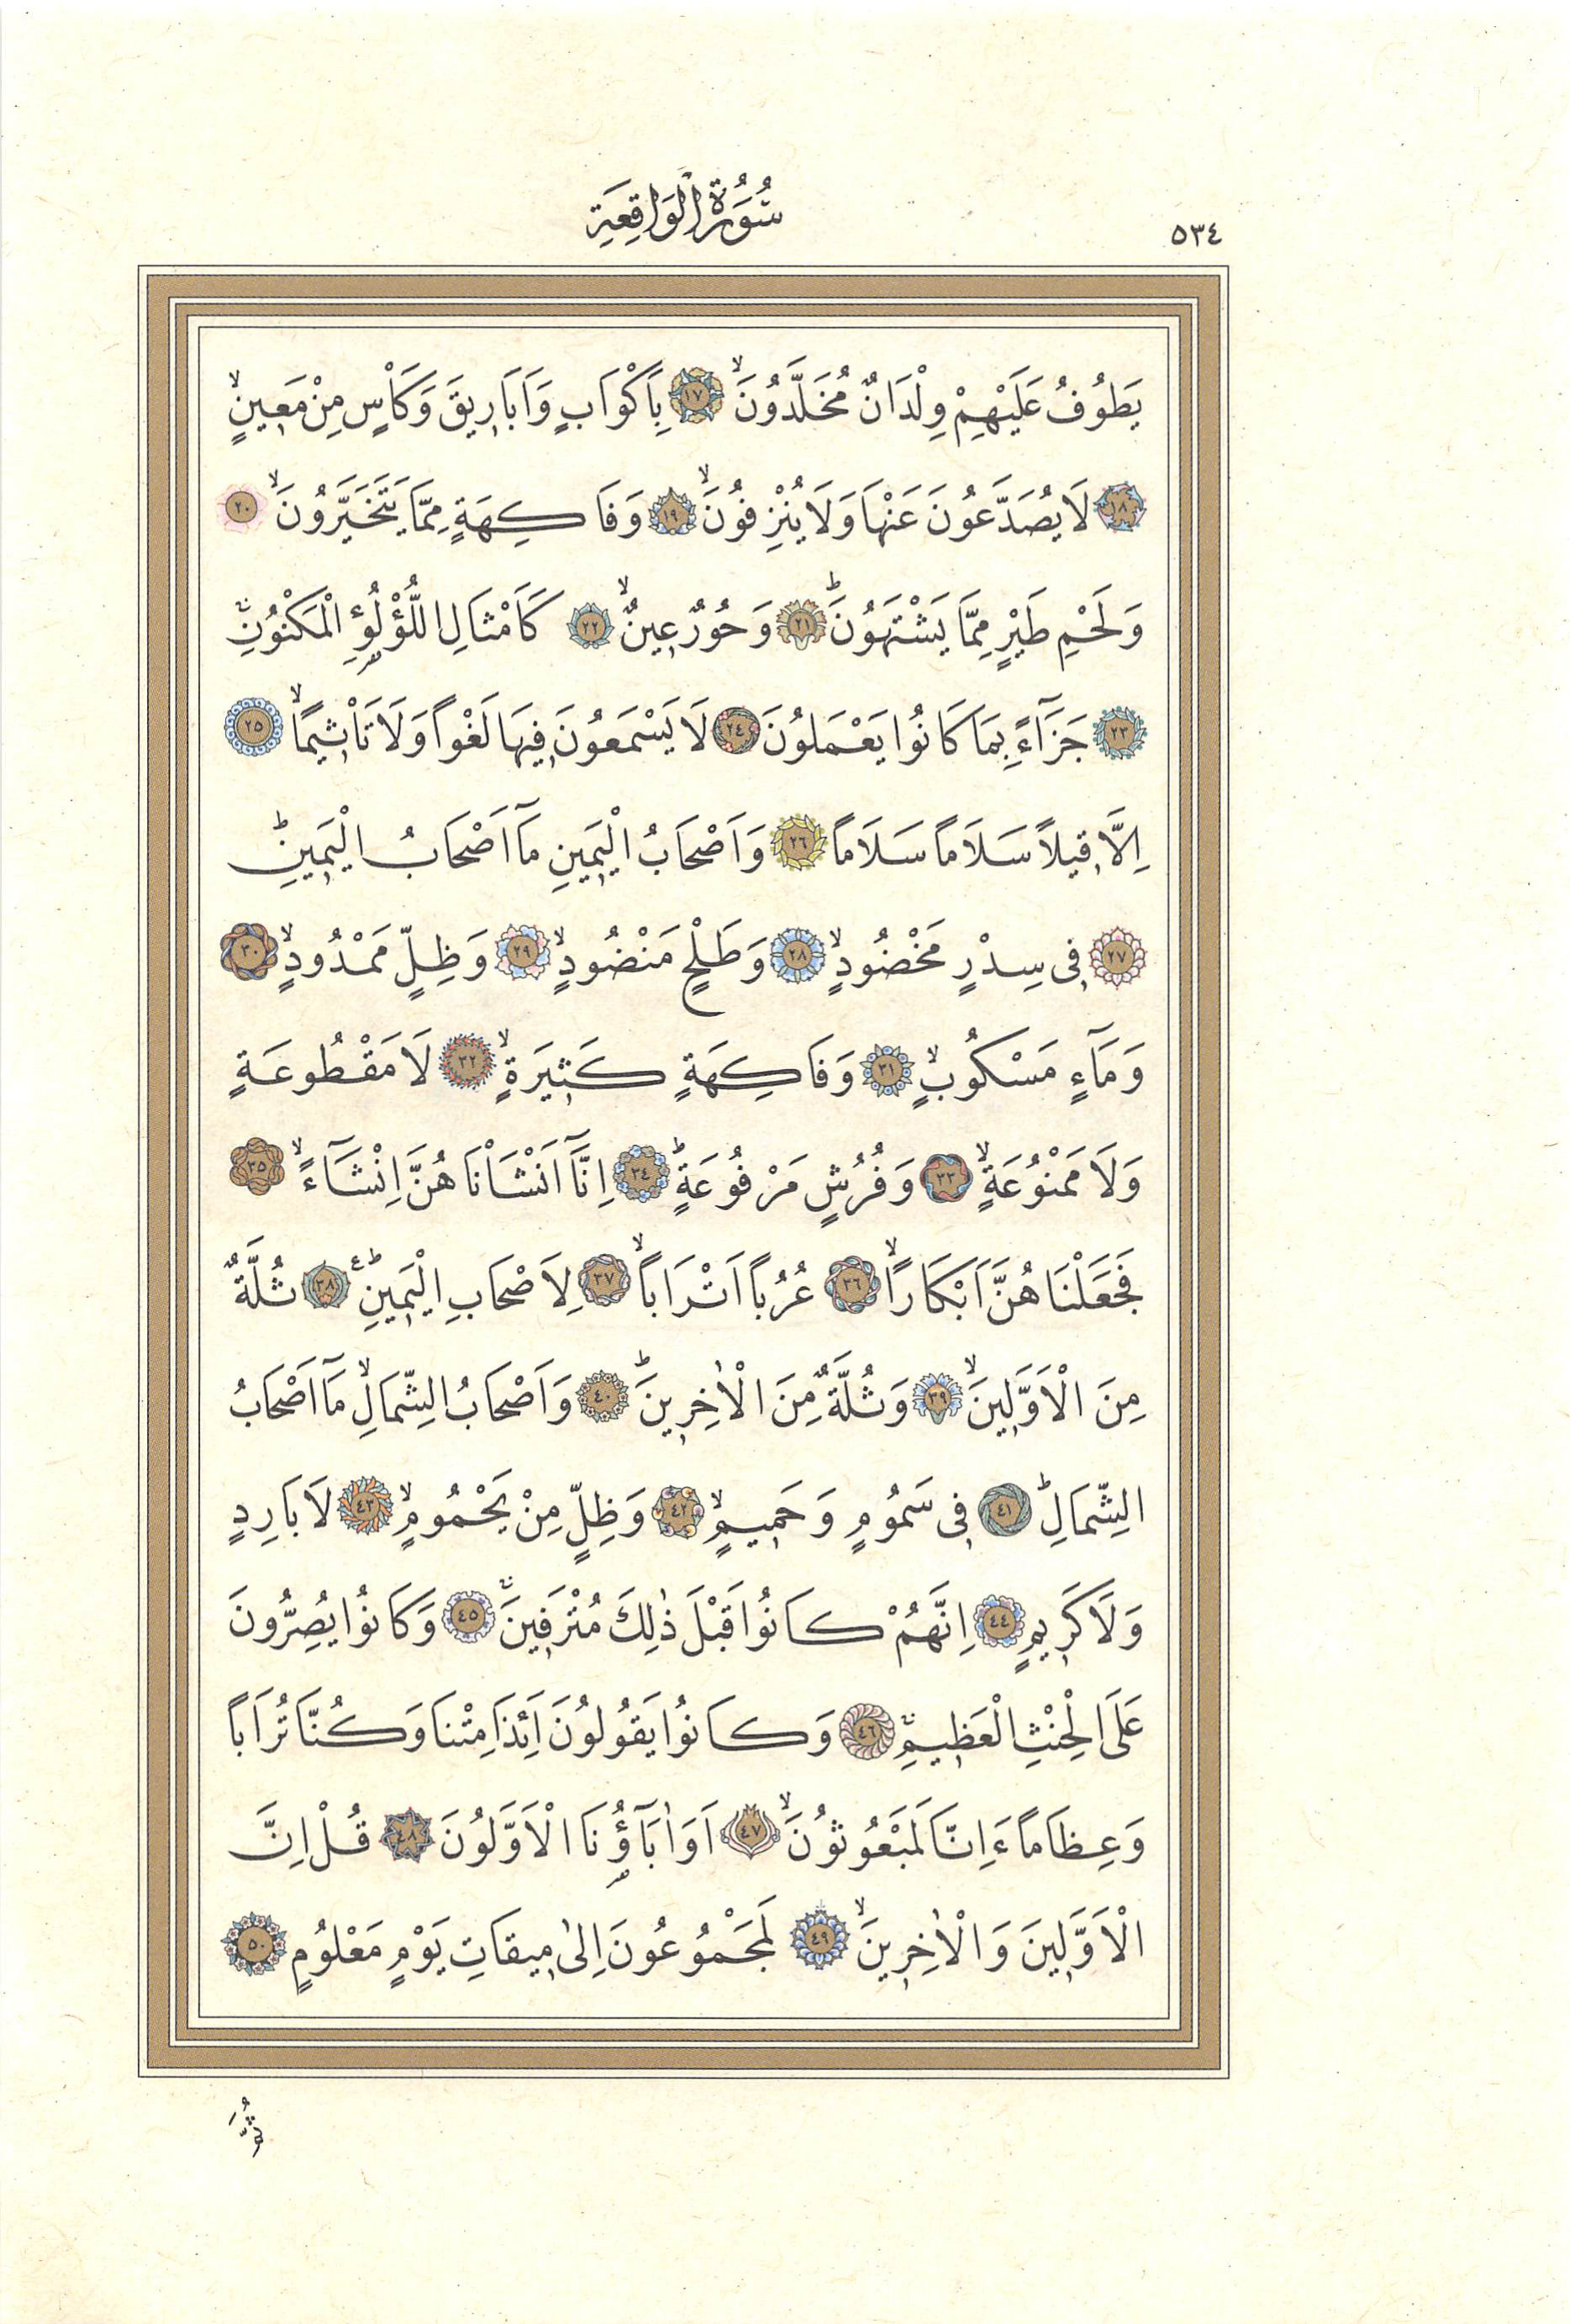 ٥٣٤
سُورَةُ الْوَاقِعَةِ
يَطُوفُ عَلَيْهِمْ وِلْدَانٌ مُخَلَّدُونَۙ ﴿١٧﴾ بِاَكْوَابٍ وَاَبَارٖيقَ وَكَاْسٍ مِنْ مَعٖينٍۙ
﴿١٨﴾ لَا يُصَدَّعُونَ عَنْهَا وَلَا يُنْزِفُونَۙ ﴿١٩﴾ وَفَاكِهَةٍ مِمَّا يَتَخَيَّرُونَۙ ﴿٢٠﴾
وَلَحْمِ طَيْرٍ مِمَّا يَشْتَهُونَؕ ﴿٢١﴾ وَحُورٌ عٖينٌۙ ﴿٢٢﴾ كَاَمْثَالِ اللُّؤْلُؤِ الْمَكْنُونِۚ
﴿٢٣﴾ جَزَٓاءً بِمَا كَانُوا يَعْمَلُونَ ﴿٢٤﴾ لَا يَسْمَعُونَ فٖيهَا لَغْواً وَلَا تَاْثٖيماًۙ ﴿٢٥﴾
اِلَّا قٖيلاً سَلَاماً سَلَاماً ﴿٢٦﴾ وَاَصْحَابُ الْيَمٖينِ مَٓا اَصْحَابُ الْيَمٖينِؕ
﴿٢٧﴾ فٖى سِدْرٍ مَخْضُودٍۙ ﴿٢٨﴾ وَطَلْحٍ مَنْضُودٍۙ ﴿٢٩﴾ وَظِلٍّ مَمْدُودٍۙ ﴿٣٠﴾
وَمَٓاءٍ مَسْكُوبٍۙ ﴿٣١﴾ وَفَاكِهَةٍ كَثٖيرَةٍۙ ﴿٣٢﴾ لَا مَقْطُوعَةٍ
وَلَا مَمْنُوعَةٍۙ ﴿٣٣﴾ وَفُرُشٍ مَرْفُوعَةٍؕ ﴿٣٤﴾ اِنَّٓا اَنْشَاْنَاهُنَّ اِنْشَٓاءًۙ ﴿٣٥﴾
فَجَعَلْنَاهُنَّ اَبْكَاراًۙ ﴿٣٦﴾ عُرُباً اَتْرَاباًۙ ﴿٣٧﴾ لِاَصْحَابِ الْيَمٖينِؕ ع ﴿٣٨﴾ ثُلَّةٌ
مِنَ الْاَوَّلٖينَۙ ﴿٣٩﴾ وَثُلَّةٌ مِنَ الْاٰخِرٖينَؕ ﴿٤٠﴾ وَاَصْحَابُ الشِّمَالِۙ مَٓا اَصْحَابُ
الشِّمَالِؕ ﴿٤١﴾ فٖى سَمُومٍ وَحَمٖيمٍۙ ﴿٤٢﴾ وَظِلٍّ مِنْ يَحْمُومٍۙ ﴿٤٣﴾ لَا بَارِدٍ
وَلَا كَرٖيمٍ ﴿٤٤﴾ اِنَّهُمْ كَانُوا قَبْلَ ذٰلِكَ مُتْرَفٖينَۚ ﴿٤٥﴾ وَكَانُوا يُصِرُّونَ
عَلَى الْحِنْثِ الْعَظٖيمِۚ ﴿٤٦﴾ وَكَانُوا يَقُولُونَ اَئِذَا مِتْنَا وَكُنَّا تُرَاباً
وَعِظَاماً ءَاِنَّا لَمَبْعُوثُونَۙ ﴿٤٧﴾ اَوَاٰبَٓاؤُنَا الْاَوَّلُونَ ﴿٤٨﴾ قُلْ اِنَّ
الْاَوَّلٖينَ وَالْاٰخِرٖينَۙ ﴿٤٩﴾ لَمَجْمُوعُونَ اِلٰى مٖيقَاتِ يَوْمٍ مَعْلُومٍ ﴿٥٠﴾
ثُمَّ